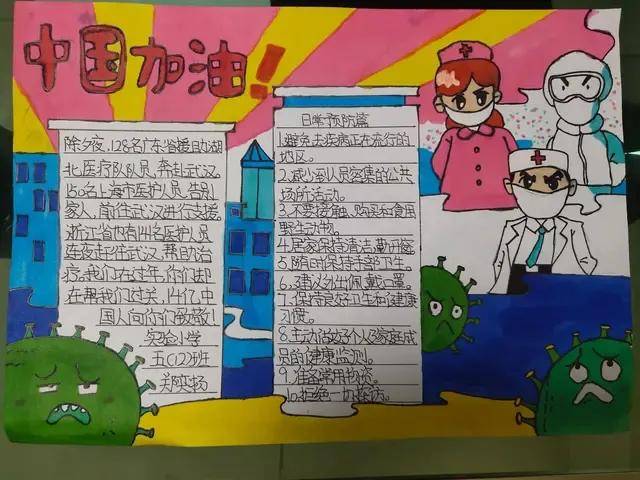 中国加油！
除夕夜，128名广东省援助湖
北医疗队队员，奔赴武汉。
150名上海市医护人员，告别
家人，前往武汉进行支援。
浙江省也有141名医护人员
连夜赶往武汉，帮助治
疗。我们在过年，你们却
在帮我们过关，14亿，中
国人向你们致敬！
实验小学
五(12)班
日常预防篇
1.避免去疾病正在流行的
地区。
2.减少到人员密集的公共
场所活动。
3.不要接触、购买和食用
野生动物。
4.居家保持清洁，勤开窗
5.随时保持手部卫生。
6.建议外出佩戴口罩。
7.保持良好卫生和健康
习惯。
8.主动做好个人及家庭成
员的健康监测。
9.准备常用物资。
10.拒绝一切探访。